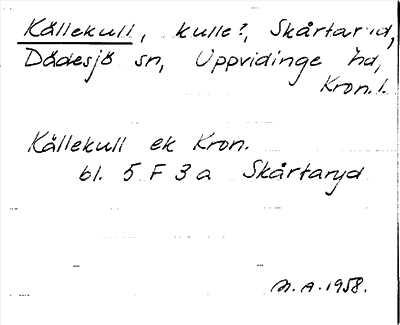 Källekull, kulle?, Skårtaryd,
Dädesjö sn, Uppvidinge hd,
Kron.l.
Källekull ek Kron.
bl. 5 F 3 a Skårtaryd
M.A. 1958.